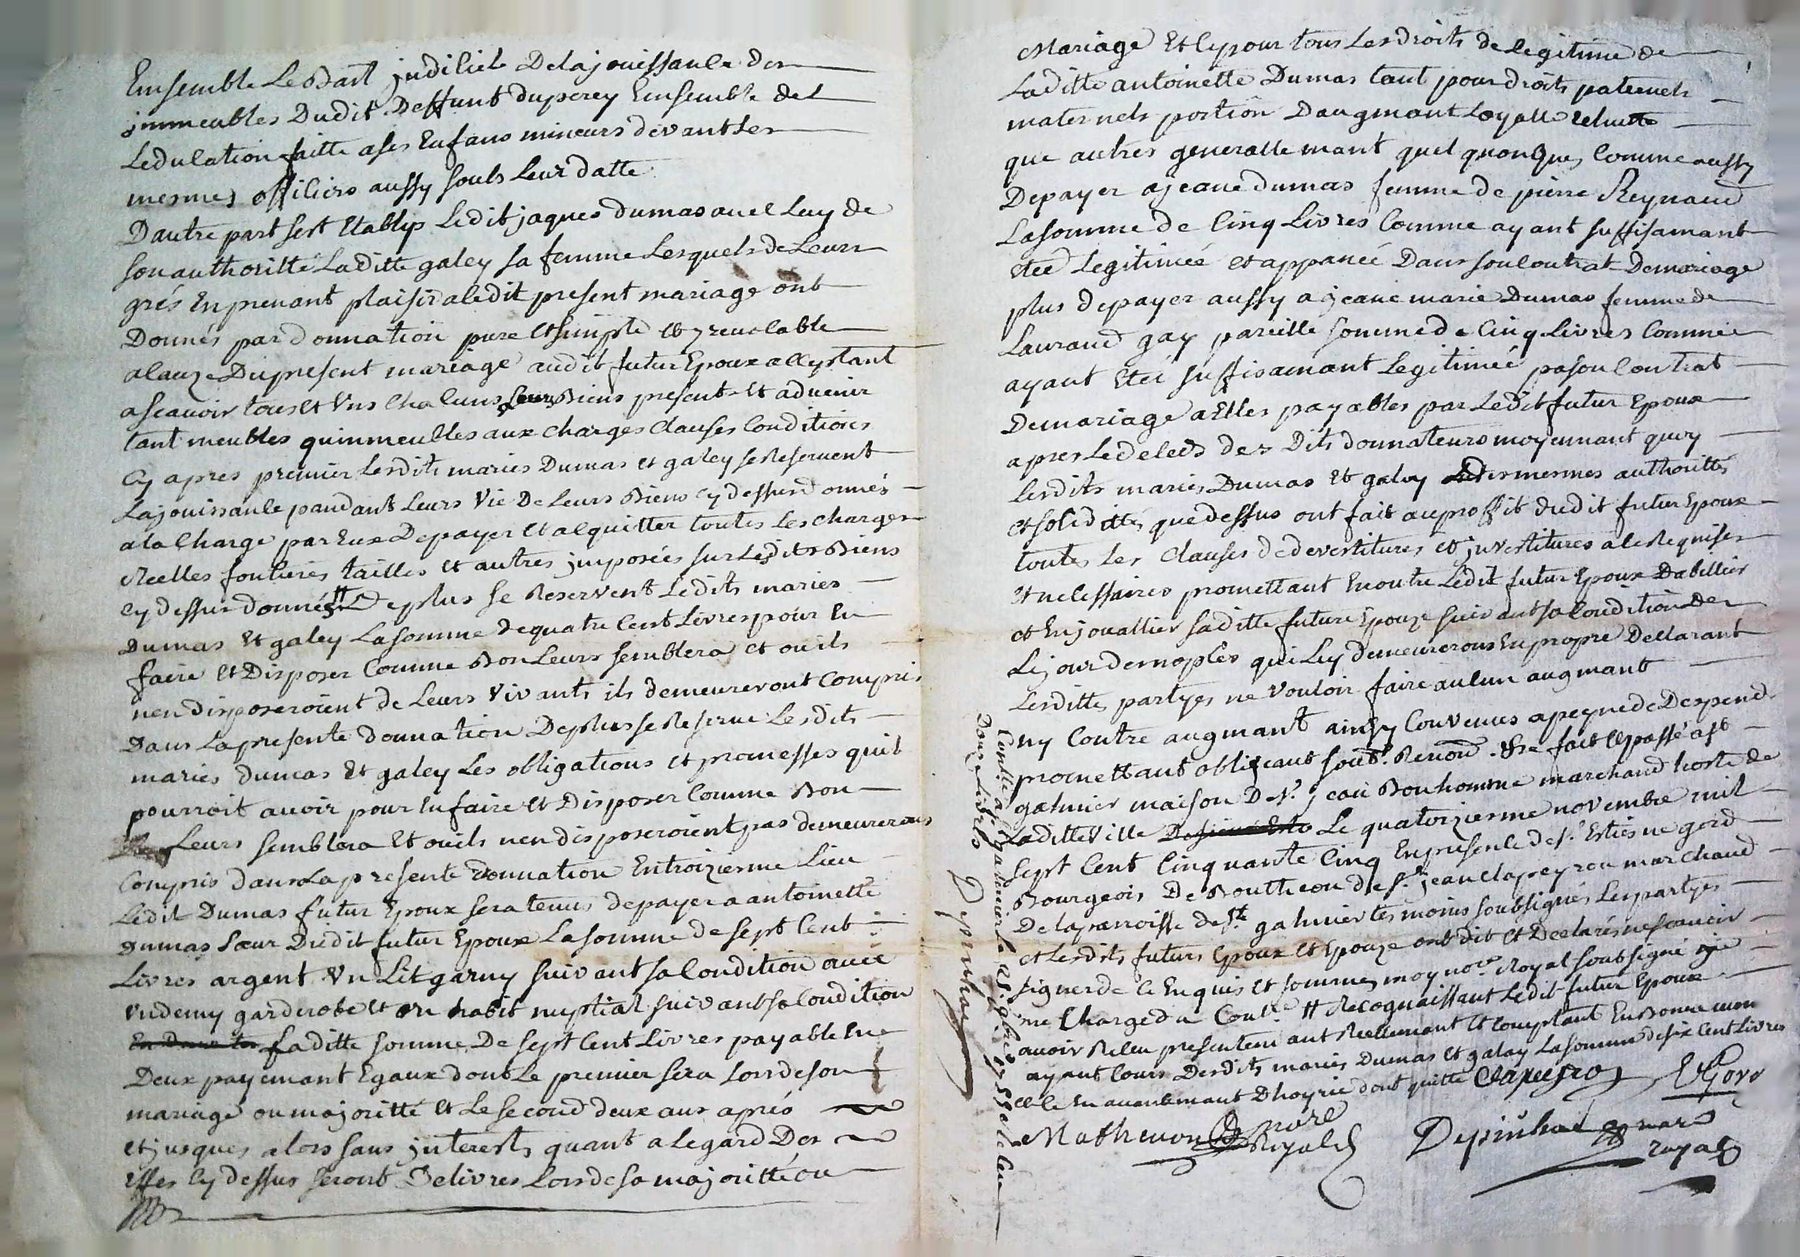 Ensemble Le Bail judiciel De la jouissance des
immeubles Dudit Deffunt duperey Ensemble de L
Cedulation faitte a ses Enfans mineurs devant les
mesmes officiers aussy soubs Leur datte
D'autre part sest Etablys Ledit jaques dumas avec Luy de
son authoritté Laditte galey sa femme Lesquels de Leurs
grés En prenant plaisir a ledit present mariage ont
Donnés par donnation pure et simple et yrevocable
a lauze Du present mariage audit futur Epoux accyptant
a scavoir tous et Uns chacuns Leurs Biens present et advenir
tant meubles quimmeubles aux charges clauses Conditions
Cy apres premier Lesdits mariés Dumas et galey se Reservent
La jouissance pandant Leurs vie De Leurs Biens cy dessus donnés
a la Charge par Eux De payer et acquitter toutes Les charges
Réelles fontieres tailles et autres jmposées sur Lesdits Biens
cy dessus donnés De plus se Reservent Lesdits mariés
Dumas Et galey La somme de quatre Cent Livres pour En
faire et Disposer Comme Bon Leurs semblera et ou ils
nen disposeroient de Leurs vivants ils demeureront Compris
Dans La presente donnation De plus se Reserve Lesdits
mariés Dumas Et galey Les obligations et promesses quil
pourroit avoir pour En faire et Disposer Comme Bon
Leurs semblera Et ou ils nen disposeroient pas demeurerons
Compris dans La presente donnation En troizieme Lieu
Ledit Dumas futur Epoux sera tenus de payer a antoinette
Dumas sœur Dudit futur Epoux La somme de sept Cent
Livres argent Un Lit garny suivant sa Condition avec
Un demy garderobe et un habit nuptial suivant sa Condition
Laditte somme De sept Cent Livres payable En
Deux payemant Egaux dont Le premier sera Lors de son
mariage ou majoritté et Le second deux ans aprés
et jusques alors sans jnterests quant a Legard Des
Effes Cy dessus seront Delivres Lors de sa majoritté ou
Mariage Et Ce pour tous Les droits de Legitime de
Laditte antoinette Dumas tant pour droits paternels
maternels portion Daugmant Loyalle
que autres generallemant quelquonques Comme aussy
De payer a jeane dumas femme de pierre Reynaud
La somme de Cinq Livres Comme ayant suffisamant
eteé Legitimeé et appaneé Dans son Contrat De mariage
plus de payer aussy a jeane marie Dumas femme de
Laurand gay pareille somme de Cinq Livres Comme
ayant Eteé suffisamant Legitimeé pa son Contrat
De mariage a Elles payables par Ledit futur Epoux
apres Le deceds des Dits donnateurs moyennant quoy
Lesdits mariés Dumas Et galey des mesmes authorittés
et solidittés que dessus ont fait au proffit dudit futur Epoux
toutes Les Clauses de devestitures et jnvestitures a ce Requises
et necessaires promettant En outre Ledit futur Epoux Dabillier
et Enjouallier saditte future Epouze suivant sa Condition De
Le jour des nopces qui Luy demeurerons En propre Declarant
Lesdittes partyes ne vouloir faire aucun augmant
ny Contre augmant ainsy Convenus a peyne de Despend
promettant obligeant soub. Renon. &ce fait et passé a St
galmier maison De Sr. jean Bonhomme marchand hoste de
Laditte ville Le quatorzieme novembre mil
sept Cent Cinquante Cinq En presence de Sr. Estiene gord
Bourgeois De Boutheon de Sr. jean Clapeyron marchand
De la parroisse de St. galmier tesmoins soubsignés Les partyes
et Lesdits futurs Epoux et Epouze ont dit et Declarés ne scavoir
signer de ce Enquis et sommes moy nore. Royal soubsigné
me Charge du Conlle. # Recognaissant Ledit futur Epoux
avoir Receu presentemant Reellemant et Comptant En Bonne mon
ayant Cours Desdits mariés Dumas et galay La somme de six Cent Livres
et ce En avancemant Dhoyrie dont quitte Clapeyron EGord
Mathevon nore Royal
Depinhac nore
royal
Conllé a St galmier Le 25 9bre 1755 Receu
Douze Livres Depinhac